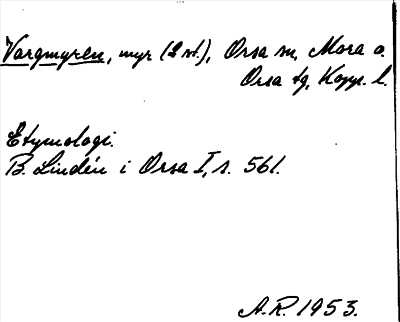 Vargmyren, myr (2 st.), Orsa sn, Mora o.
Orsa tg, Kopp. l.
Etymologi.
B. Lindén i Orsa I, s. 561.
A.R. 1953.